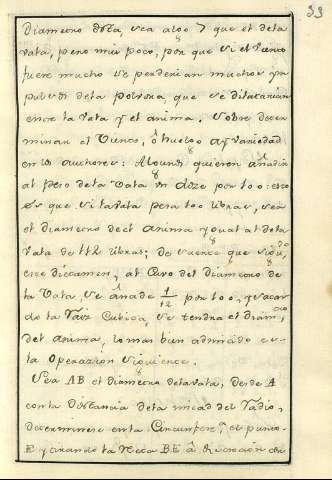 33
diametro dha, sea algo > que el de la
vala, pero mui poco, por que si el viento
fuere mucho se perderian muchos ym
pulsos de la polvora, que se dilatarian
entre la vala y el anima. Sobre deter
minar el viento, ô huelgo ay variedad
en los Auctores: Algunos quieren añadir
al peso de la Vala un doze por 100: esto
es que si la vala pesa 100 libras, sea
el diametro del anima ygual al de la
vala de 112 libras; de suerte que sigu.do
este dictamen, al Cuvo del diametro de
la Vala, se añade 1/12 por 100, y sacan
do la Raiz Cubica, se tendra el diam.tro
del anima, lo mas bien admitido es
la Operazion siguiente.
Sea AB el diametro de la vala, desde A
con la distancia de la mitad del Radio,
determinese en la Circunfer.a el punto
E y tirando la Recta BE â discrecion